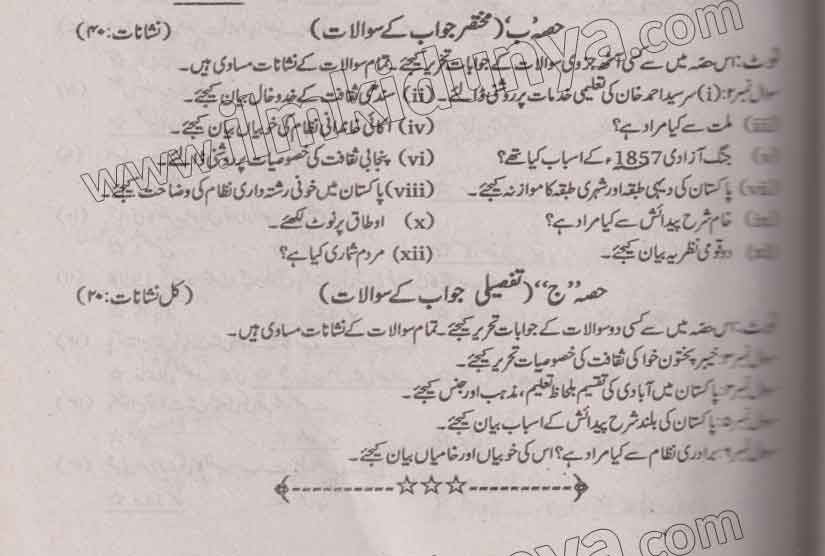 حصہ ’ب‘ (مختصر جواب کے سوالات) (نشانات: ۴۰)
نوٹ: اس حصہ میں سے کسی آٹھ جزوی سوالات کے جوابات تحریر کیجئے۔ تمام سوالات کے نشانات مساوی ہیں۔
سوال نمبر ۲: (i) سرسید احمد خان کی تعلیمی خدمات پر روشنی ڈالئے۔ (ii) سندھی ثقافت کے خدوخال بیان کیجئے۔
(iii) ملت سے کیا مراد ہے؟ (iv) اکائی خاندانی نظام کی خوبیاں بیان کیجئے۔
(v) جنگ آزادی 1857ء کے اسباب کیا تھے؟ (vi) پنجابی ثقافت کی خصوصیات پر روشنی ڈالئے۔
(vii) پاکستان کی دیہی طبقہ اور شہری طبقہ کا موازنہ کیجئے۔ (viii) پاکستان میں خونی رشتہ داری نظام کی وضاحت کیجئے۔
(ix) خام شرح پیدائش سے کیا مراد ہے؟ (x) اوطاق پر نوٹ لکھئے۔
(xi) دو قومی نظریہ بیان کیجئے۔ (xii) مردم شماری کیا ہے؟
حصہ ’’ج‘‘ (تفصیلی جواب کے سوالات) (کل نشانات: ۲۰)
نوٹ: اس حصہ میں سے کسی دو سوالات کے جوابات تحریر کیجئے۔ تمام سوالات کے نشانات مساوی ہیں۔
سوال نمبر ۳: خیبر پختون خوا کی ثقافت کی خصوصیات تحریر کیجئے۔
سوال نمبر ۴: پاکستان میں آبادی کی تقسیم بلحاظ تعلیم، مذہب اور جنس کیجئے۔
سوال نمبر ۵: پاکستان کی بلند شرح پیدائش کے اسباب بیان کیجئے۔
سوال نمبر ۶: برادری نظام سے کیا مراد ہے؟ اس کی خوبیاں اور خامیاں بیان کیجئے۔
www.ilmkidunya.com